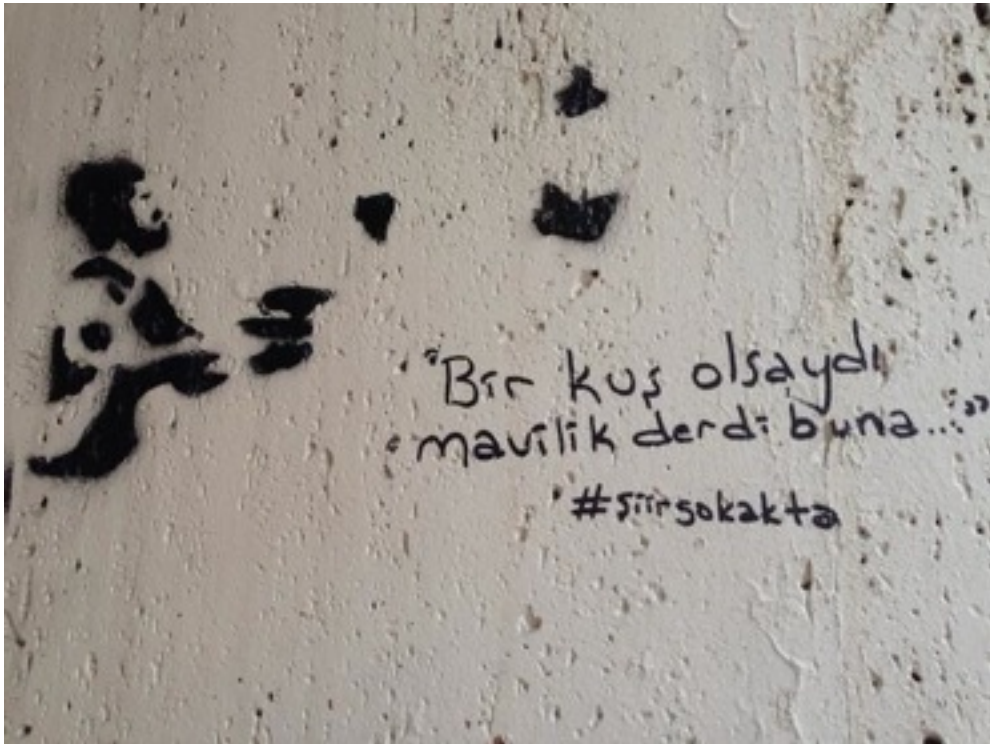 "Bir kuş olsaydı
mavilik derdi buna..."
#şiirsokakta